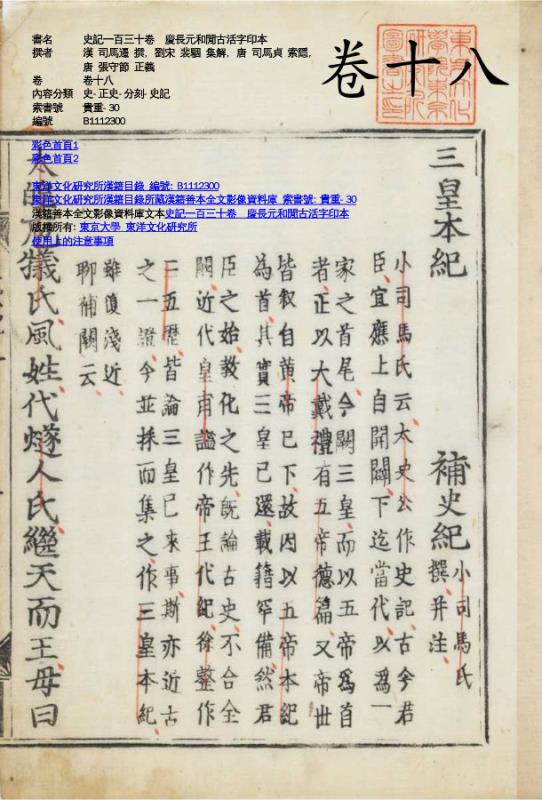 書名 史記一百三十巻 慶長元和閒古活字印本
撰者 漢 司馬遷 撰, 劉宋 裴駰 集解, 唐 司馬貞 索隱,
唐 張守節 正義
卷 卷十八
內容分類 史-正史-分刻-史記
索書號 貴重-30
編號 B1112300
彩色首頁1
彩色首頁2
東洋文化研究所漢籍目錄 編號: B1112300
東洋文化研究所漢籍目錄所藏漢籍善本全文影像資料庫 索書號: 貴重-30
漢籍善本全文影像資料庫文本史記一百三十巻 慶長元和閒古活字印本
版權所有: 東京大學 東洋文化研究所
使用上的注意事項
卷十八
三皇本紀 補史紀 小司馬氏
撰并注
小司馬氏云太史公作史記古今君
臣宜應上自開闢下迄當代以爲一
家之首尾今闕三皇而以五帝爲首
者正以大戴禮有五帝德篇又帝世
皆叙自黄帝已下故因以五帝本紀
為首其實三皇已還載籍罕備然君
臣之始教化之先旣論古史不合全
闕近代皇甫謐作帝王代紀徐整作
三五歷皆論三皇已來事斯亦近古
之一證今並採而集之作三皇本紀
雖復淺近
聊補闕云
犧氏風姓代燧人氏繼天而王母曰